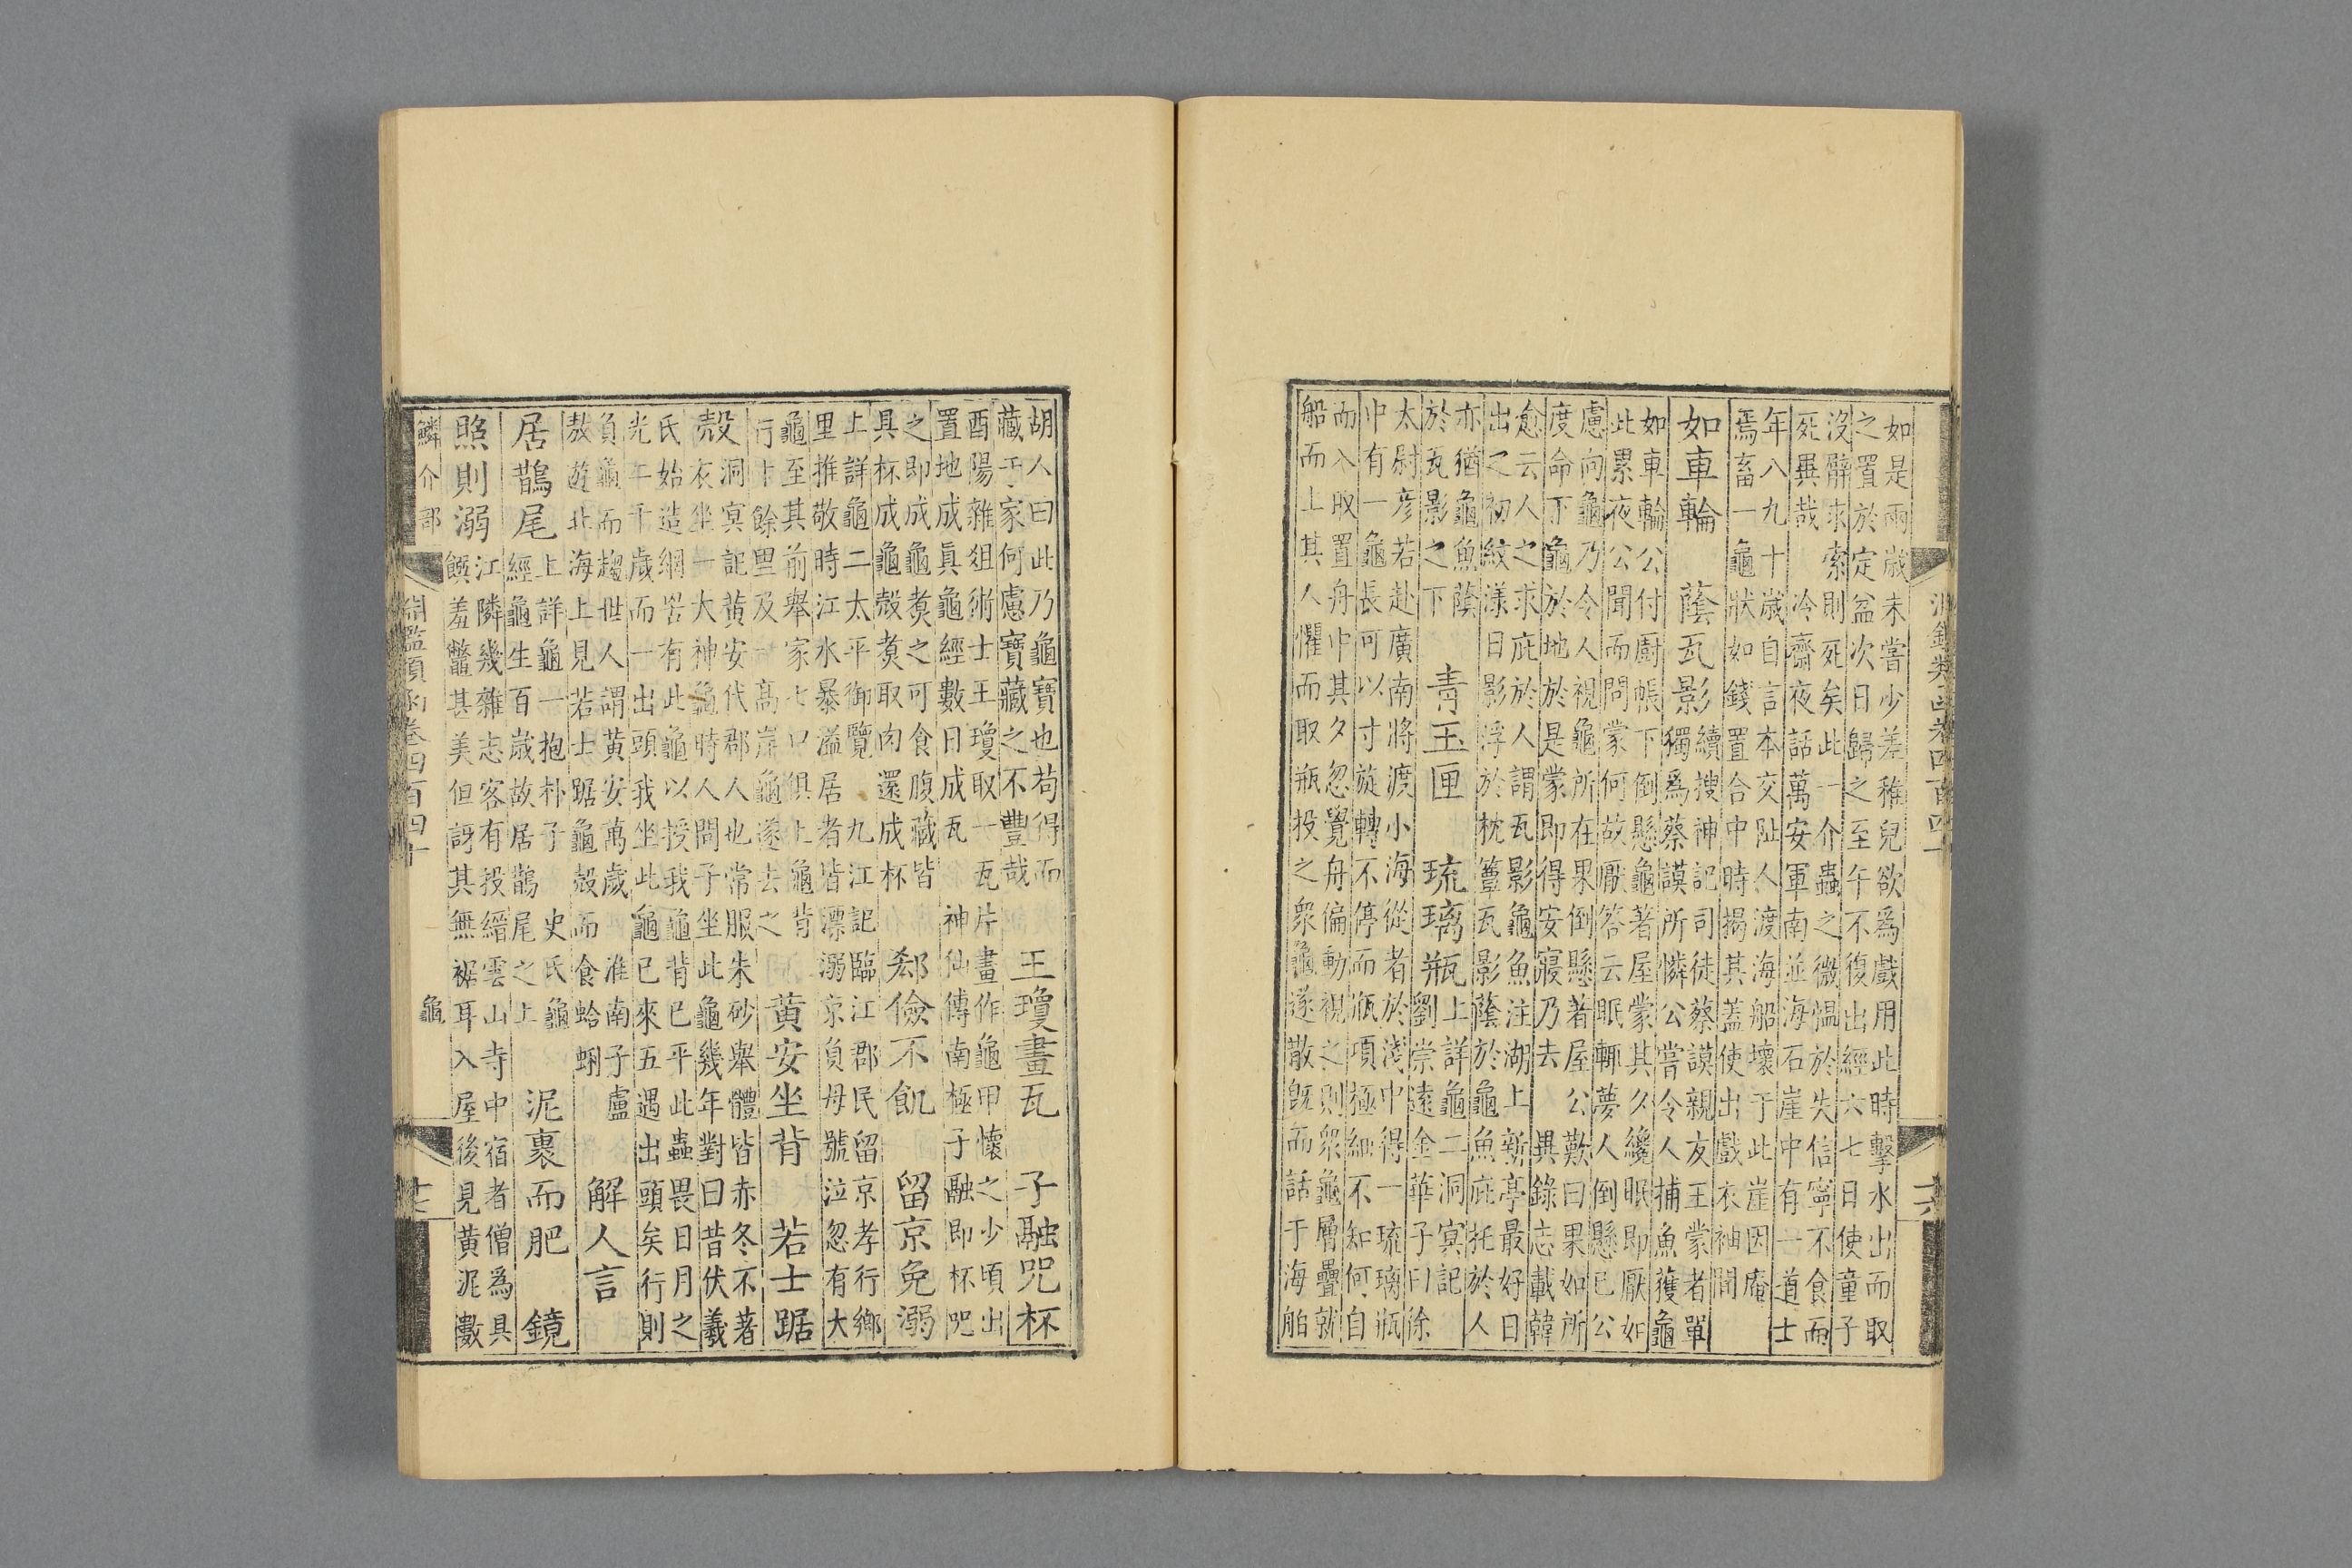 淵鑑類函卷四百四十
十六
如是兩歳未嘗少差稚兒欲爲戲用此時擊水出而取
之置於定盆次日歸之至午不復出經六七日使童子
沒辭求索則死矣此一介蟲之微愠於失信寧不食而
死異哉 冷齋夜話萬安軍南並海石崖中有一道士
年八九十歳自言本交趾人渡海船壞于此崖因庵
焉畜一龜狀如錢置合中時揭其蓋使出戲衣袖間
如車輪 蔭瓦影 續搜神記司徒蔡謨親友王蒙者單
獨爲蔡謨所憐公嘗令人捕魚獲龜
如車輪公付厨帳下倒懸龜著屋蒙其夕纔眠即厭如
此累夜公聞而問蒙何故厭答云眠輒夢人倒懸已公
慮向龜乃令人視龜所在果倒懸著屋公歎曰果如所
度命下龜於地於是蒙即得安寢乃去 異錄志載韓
愈云人之求庇於人謂瓦影龜魚注湖上新亭最好日
出之初紋漾日影浮於枕簟瓦影蔭於龜魚庇托於人
亦猶龜魚蔭
於瓦影之下 青玉匣 琉璃瓶 上詳龜二洞冥記
劉崇遠金華子曰徐
太尉彥若赴廣南將渡小海從者於淺中得一琉璃瓶
中有一龜長可以寸旋轉不停而瓶項極細不知何自
而入取置舟中其夕忽覺舟偏動視之則衆龜層疊就
船而上其人懼而取瓶投之衆龜遂散既而話于海舶
胡人曰此乃龜寶也苟得而
藏于家何慮寶藏之不豐哉 王瓊畫瓦 子融咒杯
酉陽雜俎術士王瓊取一瓦片畫作龜甲懷之少頃出
置地成眞龜經數日成瓦 神仙傳南極子融即杯咒
之即成龜煑之可食腹藏皆
具杯成龜殻煑取肉還成杯 郄儉不飢 留京免溺
上詳龜二太平御覽 九江記臨江郡民留京孝行鄉
里推敬時江水暴溢居者皆漂溺京負母號泣忽有大
龜至其前舉家七口俱上龜背
行十餘里及一高岸龜遂去之 黄安坐背 若士踞
殻 洞冥記黄安代郡人也常服朱砂舉體皆赤冬不著
衣坐一大神龜時人問子坐此龜幾年對曰昔伏羲
氏始造網罟有此龜以授我龜背已平此蟲畏日月之
光二千歳而一出頭我坐此龜已來五遇出頭矣行則
負龜而趨世人謂黄安萬歲 淮南子盧
敖遊北海上見若士踞龜殻而食蛤蜊 解人言
居鵲尾 上詳龜一抱朴子 史氏龜
經龜生百歳故居鵲尾之上 泥裹而肥 鏡
照則溺 江隣幾雜志客有投縉雲山寺中宿者僧爲具
饌羞鼈甚美但訝其無裾耳入屋後見黄泥數
鱗介部 淵鑑類函卷四百四十 龜
十七